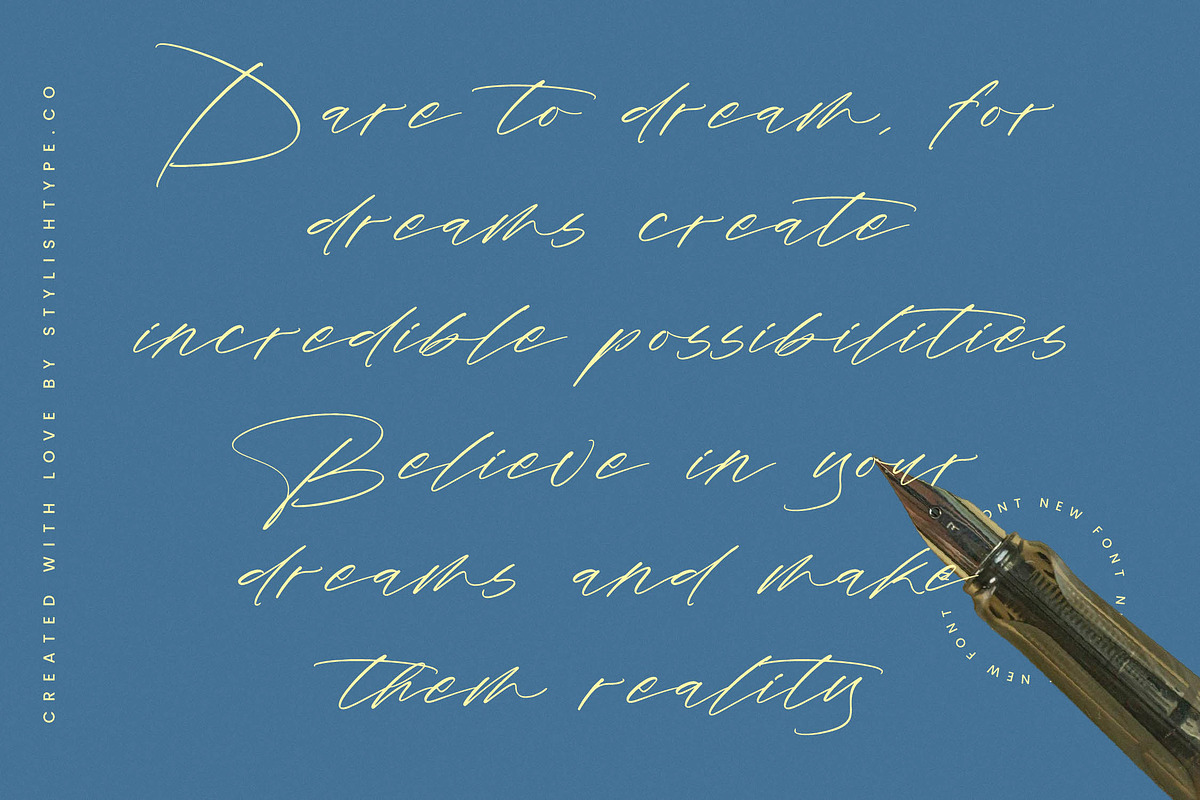 Dare to dream, for
dreams create
incredible possibilities
Believe in your
dreams and make
them reality
CREATED WITH LOVE BY STYLISHTYPE.CO
NEW FONT
NEW FONT